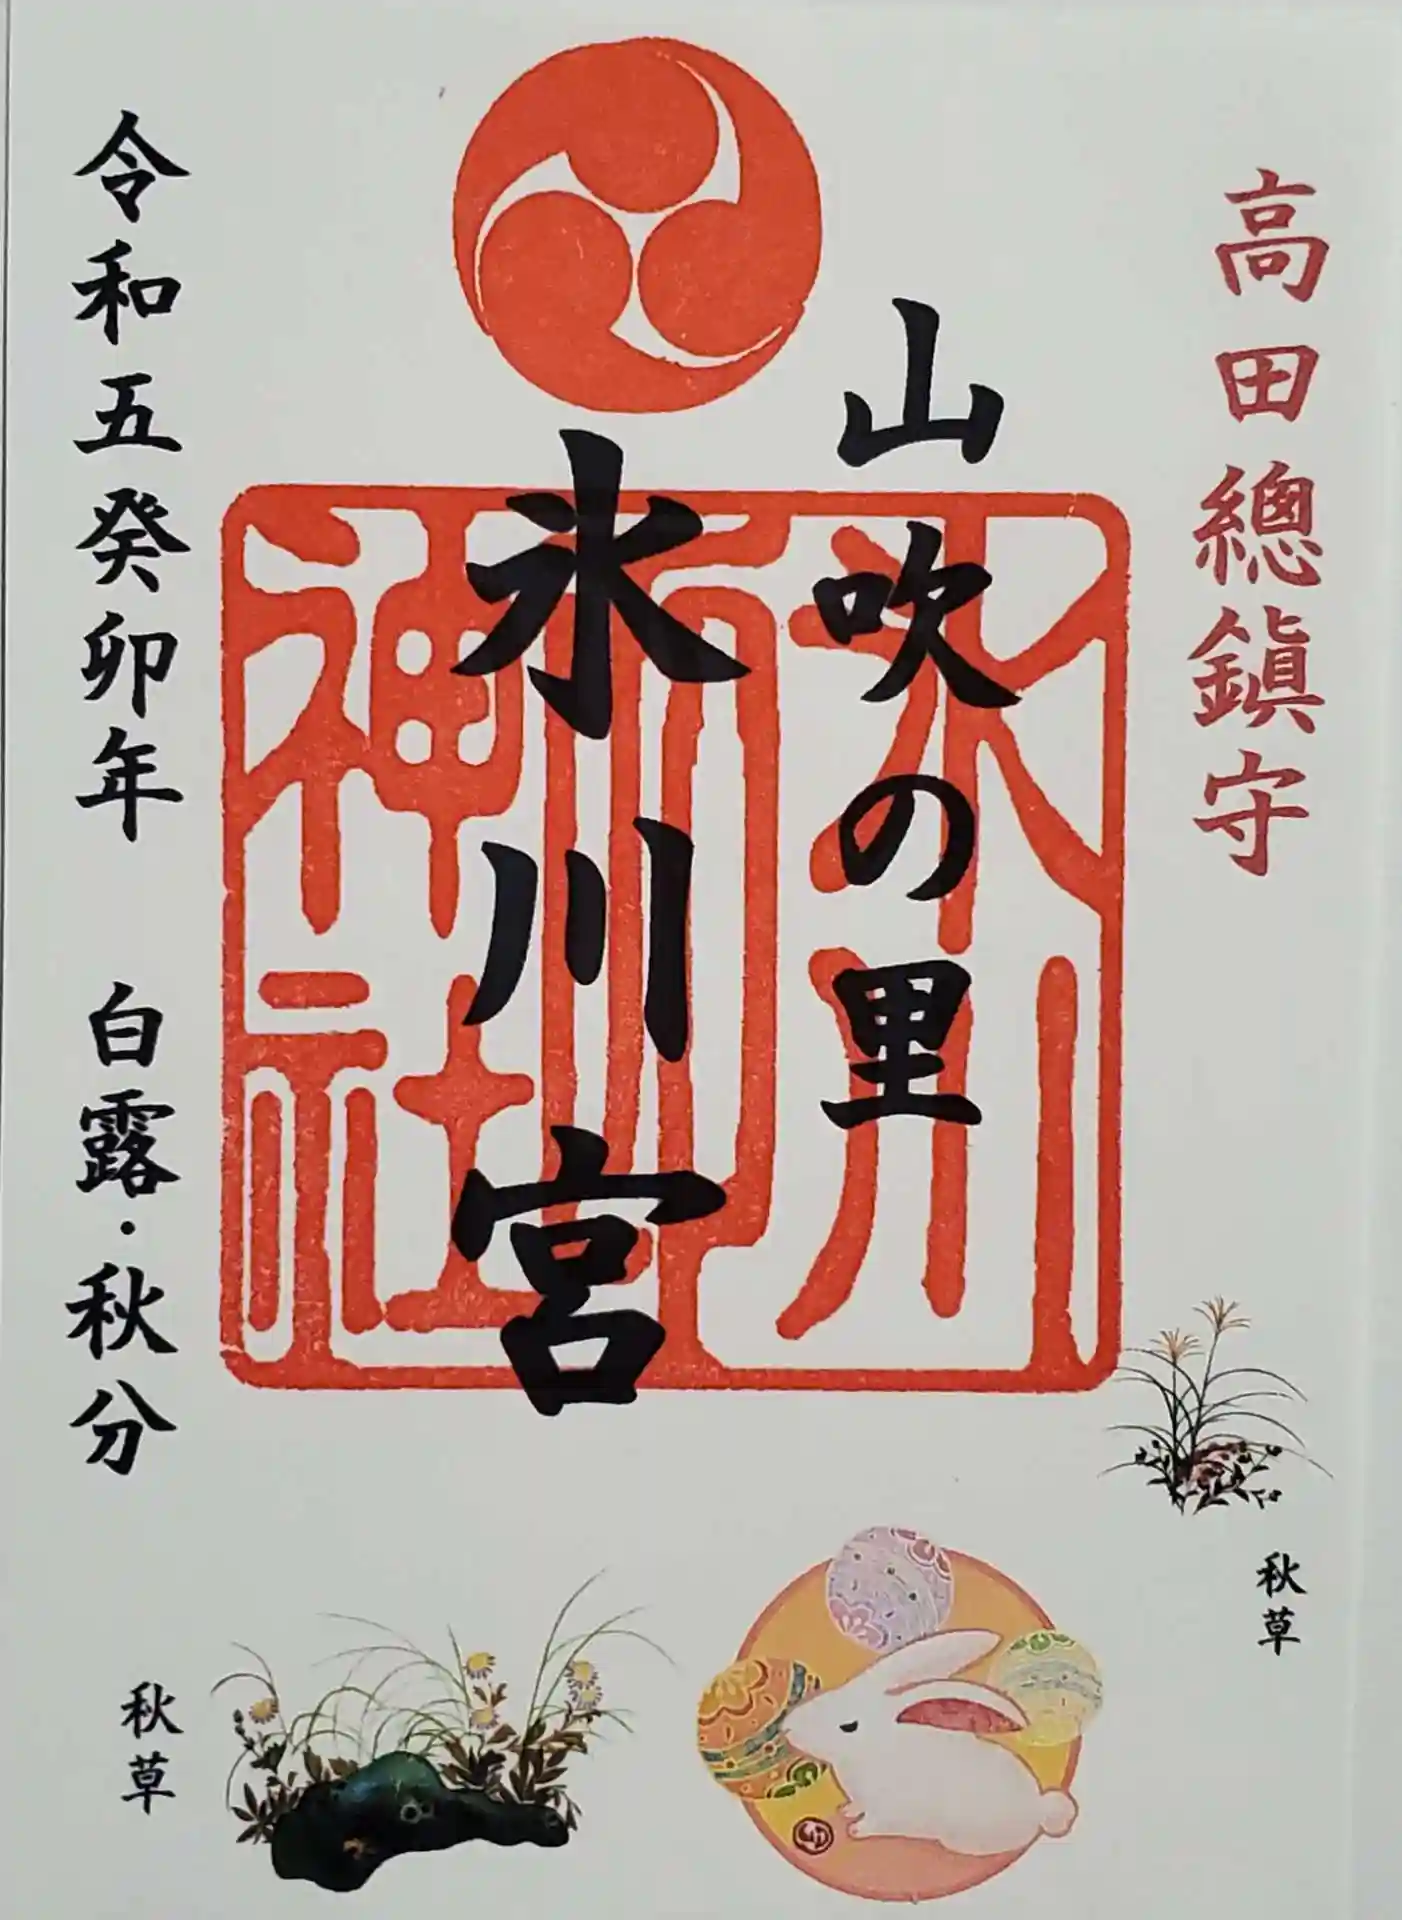 高田總鎭守
山吹の里
氷川宮
氷川神社
令和五癸卯年 白露・秋分
秋草
秋草